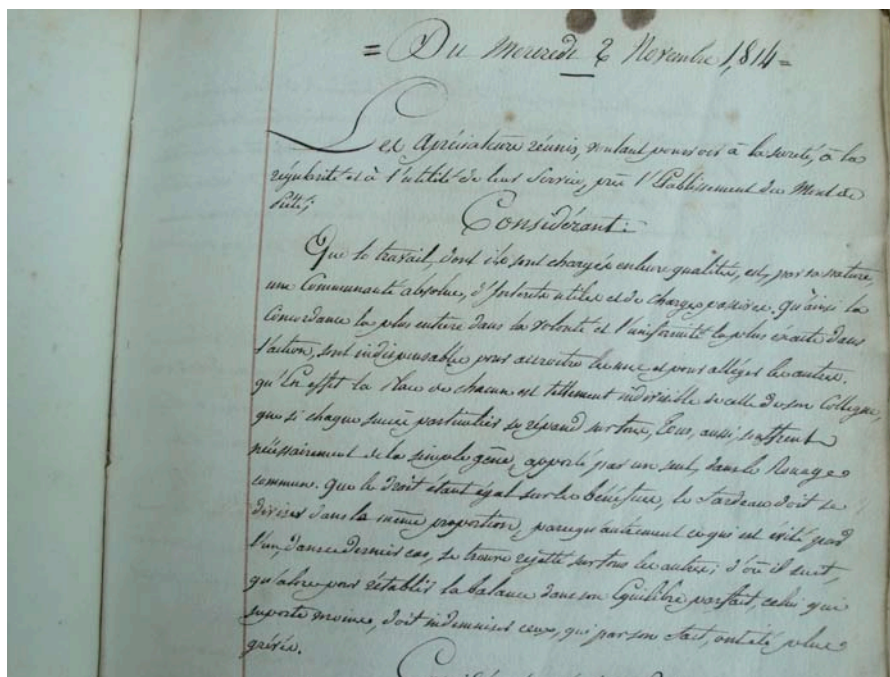 = Du Mercredi 2 Novembre 1,814 =
Les Apréciateurs réunis, voulant pourvoir à la sureté, à la
régularité et à l'utilité de leur Service, près l'Etablissement du Mont de
Piété;
Considérant:
Que le travail, dont ils sont chargés en leurs qualités, est, par sa nature,
une Communauté absolue, d'Interêts utiles et de charges passives. qu'ainsi la
Concordance la plus entière dans la volonté et l'uniformité la plus éxacte dans
l'action, sont indispensables pour accroitre les uns et pour alléger les autres.
qu'En effet la Place de chacun est tellement indivisible de celle de son Collegue,
que si chaque succès particulier se répand sur tous, tous, aussi, souffrent
nécessairement de la simple gêne, apporté par un seul, dans le Rouage
commun. Que le Droit étant égal sur les bénéfices, le fardeau doit se
diviser dans la même proportion, parcequ'autrement ce qui est évité par
l'un, dans ce dernier cas, se trouve rejetté sur tous les autres; d'où il suit,
qu'alors pour rétablir la balance dans son Equilibre parfait, celui qui
suporte moins, doit indemniser ceux, qui par son fait, ont été plus
grévés.